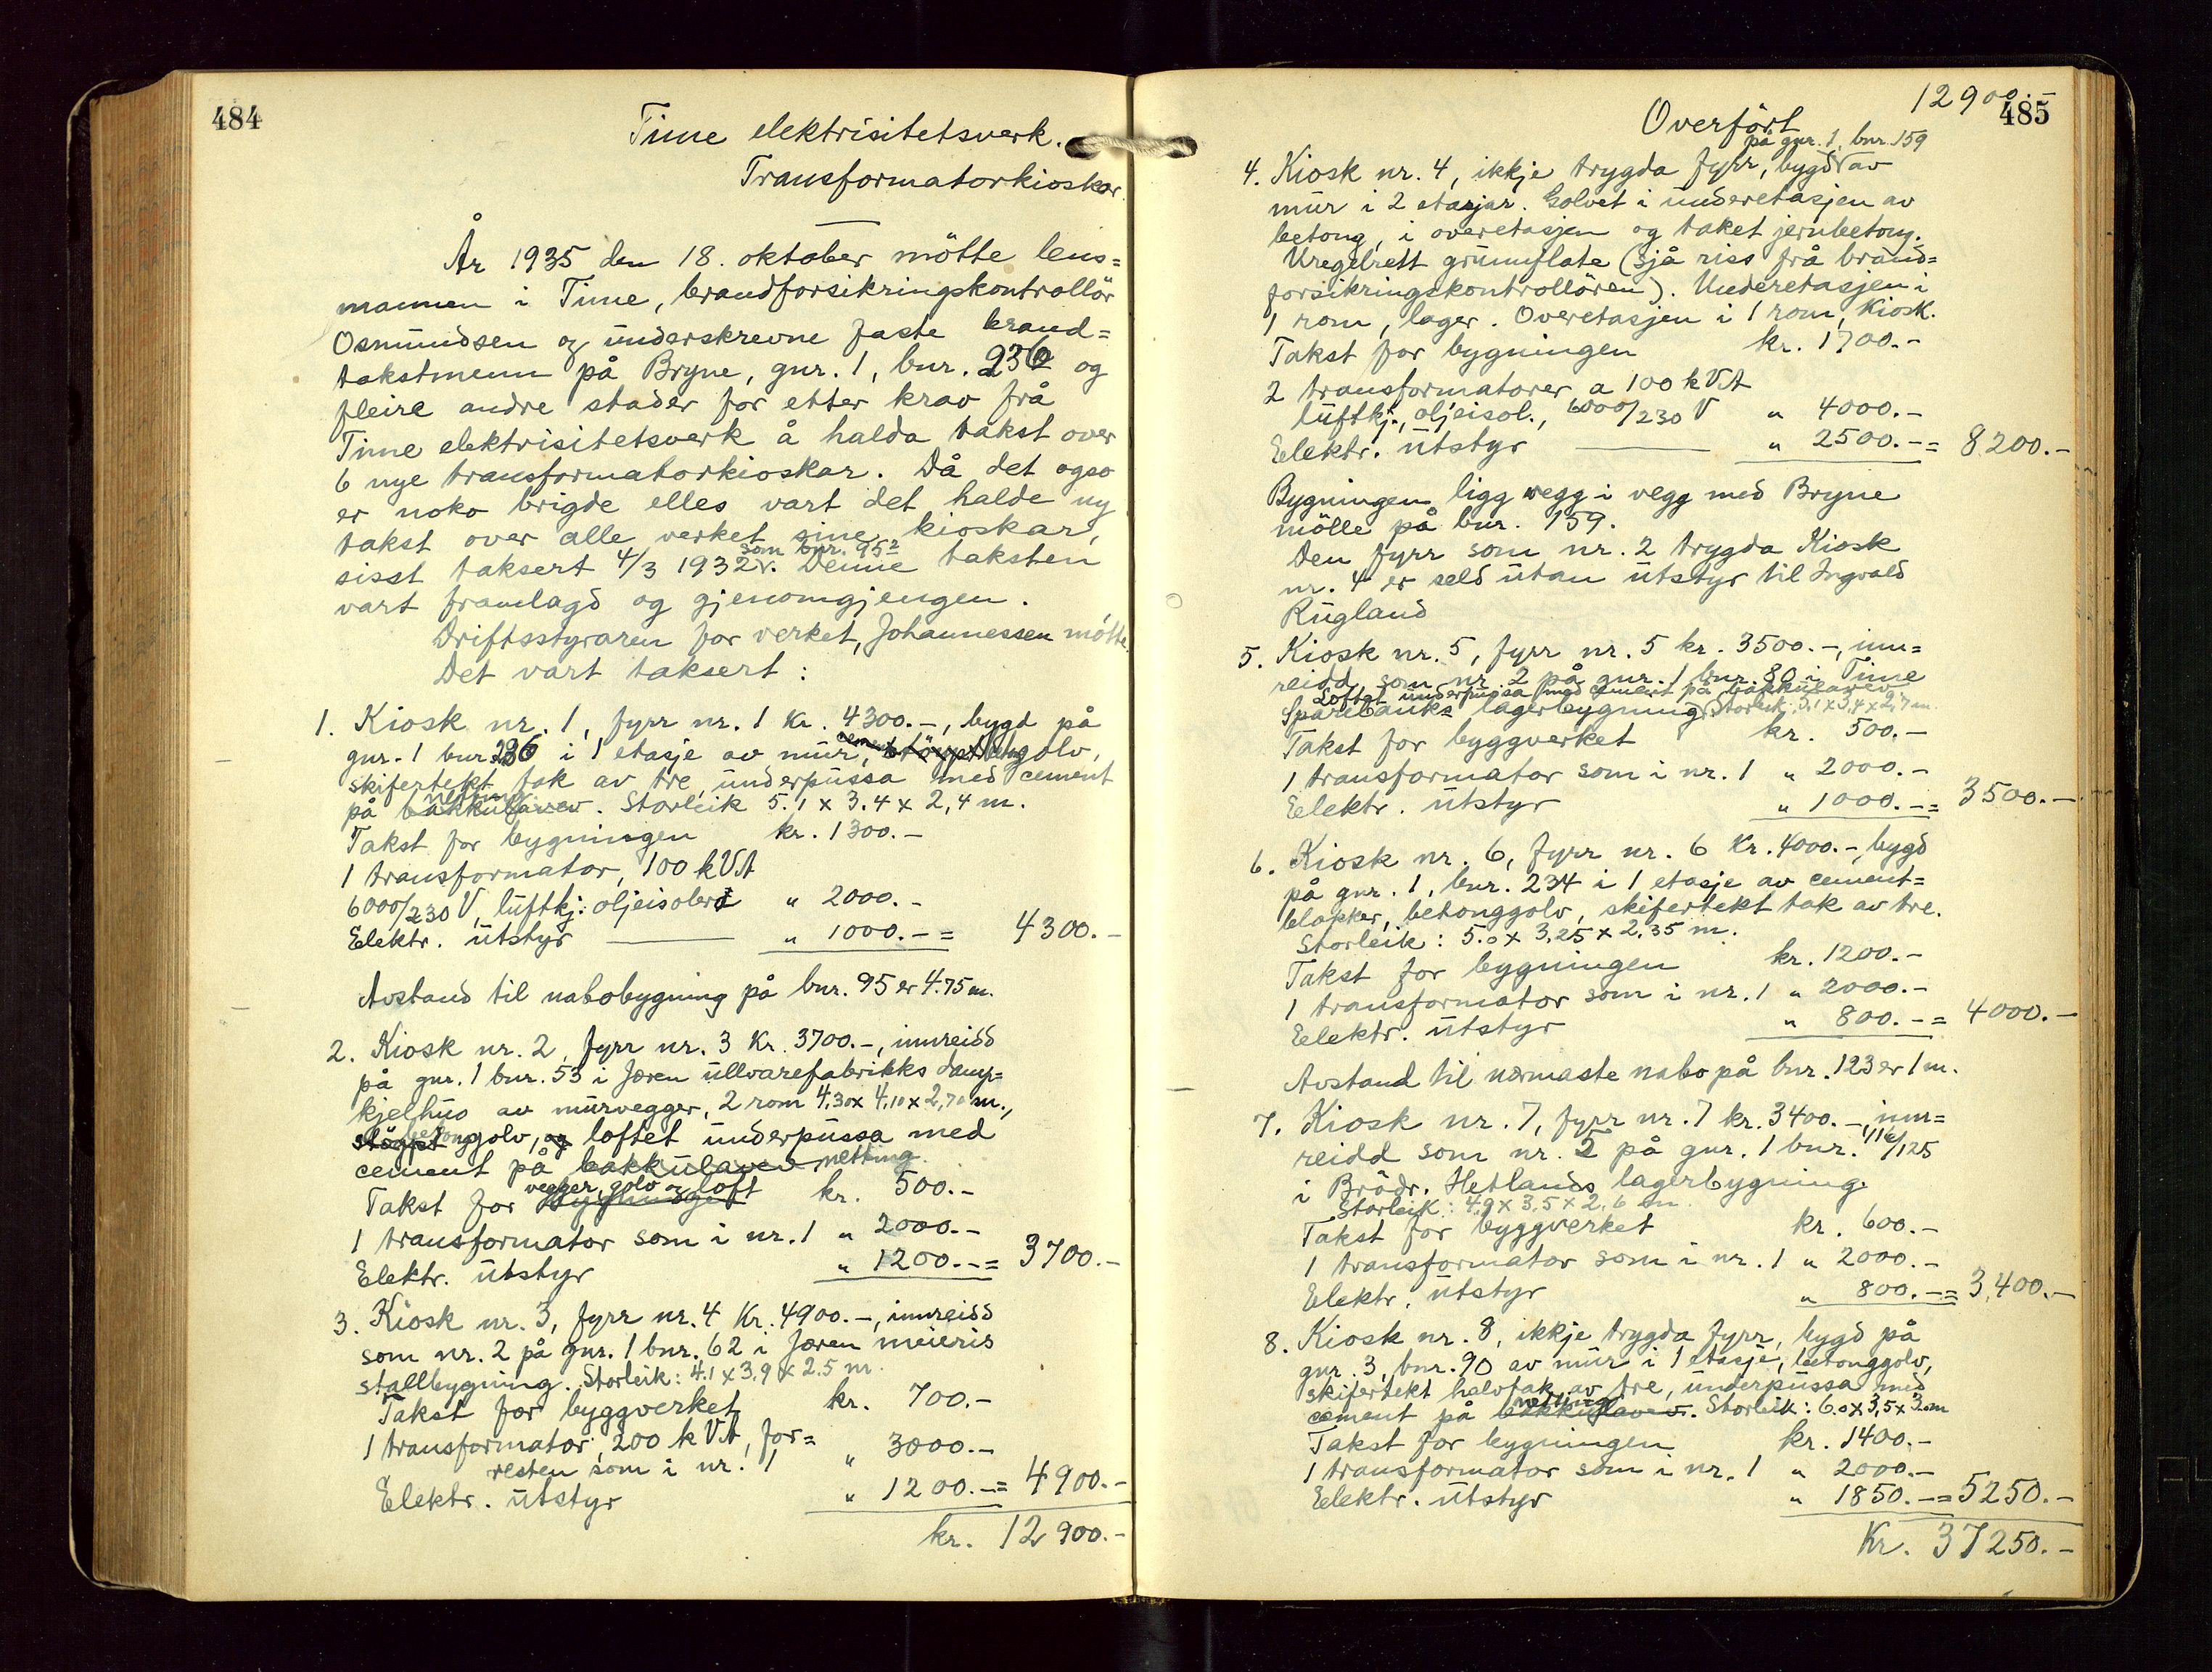 484
Time elektrisitetsverk.
Transformatorkioskar.
År 1935 den 18. oktober mötte lens=
mannen i Time, brandforsikringskontrollör
Osmundsen og underskrevne faste brand=
takstmenn på Bryne, gnr. 1, bnr. 236 og
fleire andre stader for etter krav frå
Time elektrisitetsverk å halda takst over
6 nye transformatorkioskar. Då det ogso
er noko brigde elles vart det halde ny
takst over alle verket sine kioskar,
som bnr. 95²
sisst taksert 4/3 1932 v. Denne taksten
vart framlagd og gjenomgjengen.
Driftsstyraren for verket, Johannessen mötte.
Det vart taksert:
1. Kiosk nr. 1, fyrr nr. 1 kr. 4300.-, bygd på
gnr. 1 bnr. 236 i 1 etasje av mur, golv,
skifertekt tak av tre, underpussa med cement
netting
på bakkulavev. Storleik 5.1 x 3.4 x 2,4 m.
Takst for bygningen kr. 1300.-
1 transformator, 100 kVA
6000/230 V, luftkj. oljeisolert " 2000.-
Elektr. utstyr " 1000.- = 4300.-
Avstand til nabobygning på bnr. 95 er 4.75 m.
2. Kiosk nr. 2, fyrr nr. 3 Kr. 3700.-, innreidd
på gnr. 1 bnr. 53 i Jæren ullvarefabrikks damp=
kjelhus av murvegger, 2 rom 4,30 x 4,10 x 2,70 m.,
betong
stöypt golv, og loftet underpussa med
cement på bakkulavev netting.
vegger, golv og loft
Takst for kr. 500.-
1 transformator som i nr. 1 " 2000.-
Elektr. utstyr " 1200.- = 3700.-
3. Kiosk nr. 3, fyrr nr. 4 Kr. 4900.-, innreidd
som nr. 2 på gnr. 1 bnr. 62 i Jæren meieris
stallbygning. Storleik: 4.1 x 3.9 x 2.5 m.
Takst for byggverket kr. 700.-
1 transformator 200 kVA, for=
resten som i nr. 1 " 3000.-
Elektr. utstyr " 1200.- = 4900.-
kr. 12900.-
485
Overfört 12900.-
på gnr. 1, bnr. 159
4. Kiosk nr. 4, ikkje trygda fyrr, bygd av
mur i 2 etasjar. Golvet i underetasjen av
betong, i overetasjen og taket jernbetong.
Uregelrett grunnflate (Sjå riss frå brand=
forsikringskontrollören). Underetasjen i
1 rom, lager. Overetasjen i 1 rom, Kiosk.
Takst for bygningen kr. 1700.-
2 transformatorer a 100 kVA
luftkj., oljeisol., 6000/230 V " 4000.-
Elektr. utstyr " 2500.- = 8200.-
Bygningen ligg vegg i vegg med Bryne
mölle på bnr. 159.
Den fyrr som nr. 2 trygda Kiosk
nr. 4 er seld utan utstyr til Ingvald
Rugland
5. Kiosk nr. 5, fyrr nr. 5 kr. 3500.-, inn=
reidd som nr. 2 på gnr. 1 bnr. 80 i Time
Loftet underpussa med cement på bakkulavev.
Sparebanks lagerbygning. Storleik: 5,1 x 3,4 x 2,7 m.
Takst for byggverket kr. 500.-
1 transformator som i nr. 1 " 2000.-
Elektr. utstyr " 1000.- = 3500.-
6. Kiosk nr. 6, fyrr nr. 6 Kr. 4000.-, bygd
på gnr. 1, bnr. 234 i 1 etasje av cement=
blokker, betonggolv, skifertekt tak av tre.
Storleik: 5.0 x 3,25 x 2,35 m.
Takst for bygningen kr. 1200.-
1 transformator som i nr. 1 " 2000.-
Elektr. utstyr " 800.- = 4000.-
Avstand til nærmaste nabo på bnr. 123 er 1 m.
7. Kiosk nr. 7, fyrr nr. 7 kr. 3400.-, inn=
reidd som nr. 2 på gnr. 1 bnr. 116/125
i Brödr. Hetlands lagerbygning.
Storleik: 4.9 x 3,5 x 2,6 m.
Takst for byggverket kr. 600.-
1 transformator som i nr. 1 " 2000.-
Elektr. utstyr " 800.- = 3,400.-
8. Kiosk nr. 8, ikkje trygda fyrr, bygd på
gnr. 3, bnr. 90 av mur i 1 etasje, betonggolv,
skifertekt halvtak av tre, underpussa med
netting
cement på bakkulavev. Storleik: 6.0 x 3,5 x 3.0m
Takst for bygningen kr. 1400.-
1 transformator som i nr. 1 " 2000.-
Elektr. utstyr " 1850.- = 5250.-
Kr. 37250.-